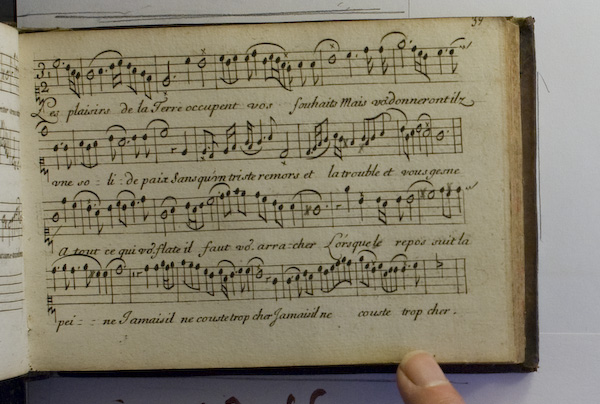 39
Les plaisirs de la Terre occupent vos souhaits Mais vo9 donneront ilz
vne so - li - de paix Sans qu'vn triste remors et la trouble et vous gesne
A tout ce qui vo9 flate il faut vo9 arra-cher Lorsque le repos suit la
pei - - ne Jamais il ne couste trop cher Jamais il ne couste trop cher.